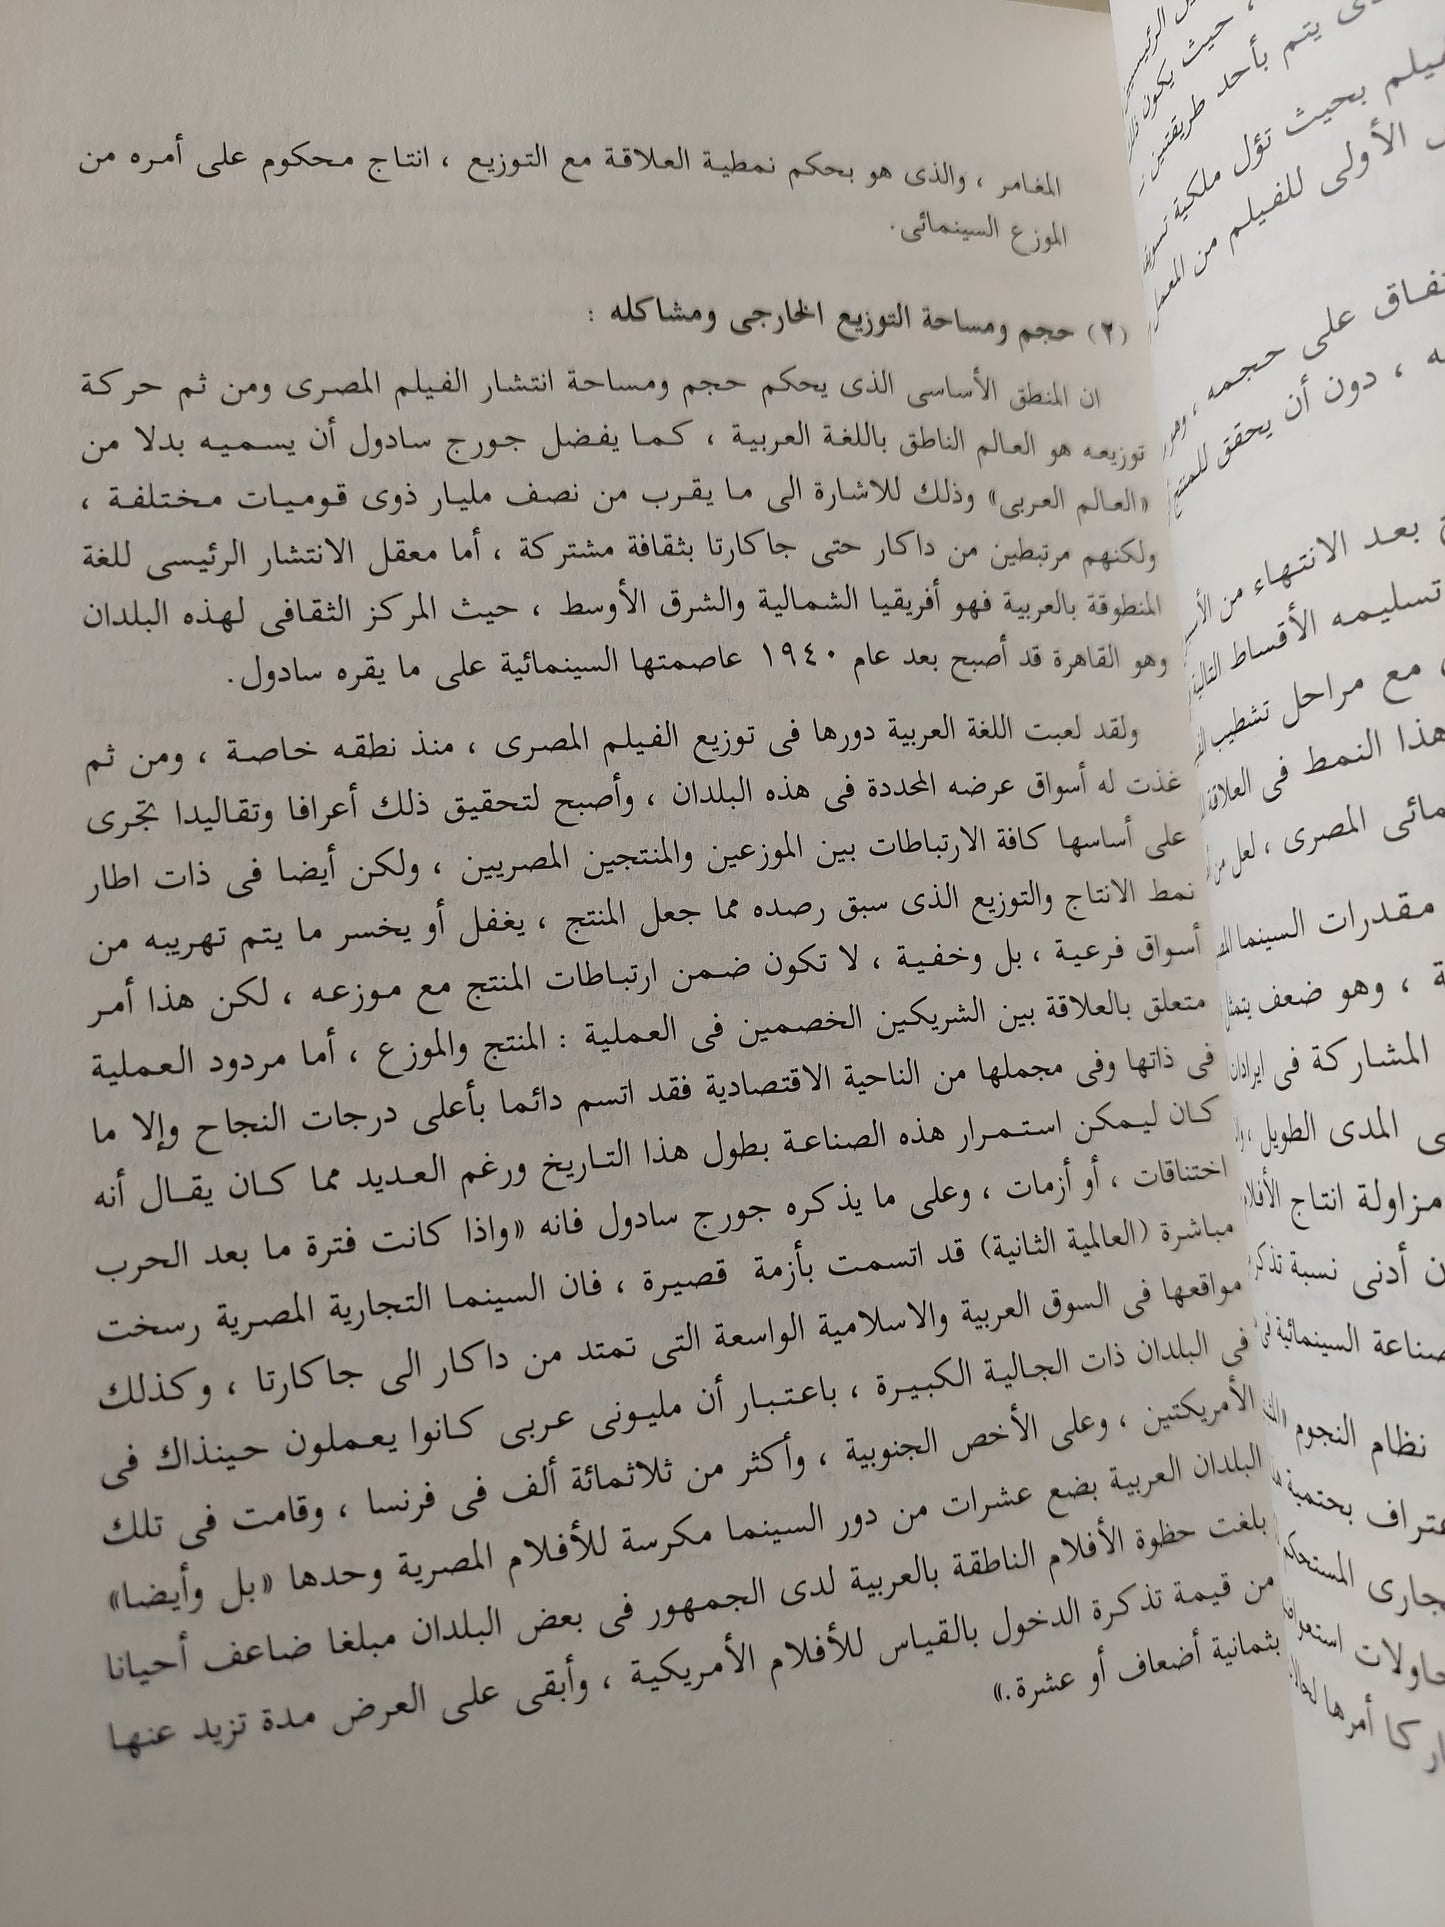 المغامر ، والذى هو بحكم نمطية العلاقة مع التوزيع ، انتاج محكوم على أمره من
الموزع السينمائى .
(٢) حجم ومساحة التوزيع الخارجى ومشاكله :
ان المنطق الأساسى الذى يحكم حجم ومساحة انتشار الفيلم المصرى ومن ثم حركة
توزيعه هو العالم الناطق باللغة العربية ، كما يفضل جورج سادول أن يسميه بدلا من
«العالم العربى» وذلك للاشارة الى ما يقرب من نصف مليار ذوى قوميات مختلفة ،
ولكنهم مرتبطين من داكار حتى جاكارتا بثقافة مشتركة ، أما معقل الانتشار الرئيسى للغة
المنطوقة بالعربية فهو أفريقيا الشمالية والشرق الأوسط ، حيث المركز الثقافى لهذه البلدان
وهو القاهرة قد أصبح بعد عام ١٩٤٠ عاصمتها السينمائية على ما يقره سادول .
ولقد لعبت اللغة العربية دورها فى توزيع الفيلم المصرى ، منذ نطقه خاصة ، ومن ثم
غذت له أسواق عرضه المحددة فى هذه البلدان ، وأصبح لتحقيق ذلك أعرافا وتقاليدا تجرى
على أساسها كافة الارتباطات بين الموزعين والمنتجين المصريين ، ولكن أيضا فى ذات اطار
نمط الانتاج والتوزيع الذى سبق رصده مما جعل المنتج ، يغفل أو يخسر ما يتم تهريبه من
أسواق فرعية ، بل وخفية ، لا تكون ضمن ارتباطات المنتج مع موزعه ، لكن هذا أمر
متعلق بالعلاقة بين الشريكين الخصمين فى العملية : المنتج والموزع ، أما مردود العملية
فى ذاتها وفى مجملها من الناحية الاقتصادية فقد اتسم دائما بأعلى درجات النجاح وإلا ما
كان ليمكن استمرار هذه الصناعة بطول هذا التاريخ ورغم العديد مما كان يقال أنه
اختناقات ، أو أزمات ، وعلى ما يذكره جورج سادول فانه «واذا كانت فترة ما بعد الحرب
مباشرة (العالمية الثانية) قد اتسمت بأزمة قصيرة ، فان السينما التجارية المصرية رسخت
مواقعها فى السوق العربية والاسلامية الواسعة التى تمتد من داكار الى جاكارتا ، وكذلك
فى البلدان ذات الجالية الكبيرة ، باعتبار أن مليونى عربى كانوا يعملون حينذاك فى
الأمريكتين ، وعلى الأخص الجنوبية ، وأكثر من ثلاثمائة ألف فى فرنسا ، وقامت فى تلك
البلدان العربية بضع عشرات من دور السينما مكرسة للأفلام المصرية وحدها «بل وأيضا»
بلغت حظوة الأفلام الناطقة بالعربية لدى الجمهور فى بعض البلدان مبلغا ضاعف أحيانا
من قيمة تذكرة الدخول بالقياس للأفلام الأمريكية ، وأبقى على العرض مدة تزيد عنها
بثمانية أضعاف أو عشرة .»
يتم بأحد طريقتين
بحيث تؤل ملكية
الأولى للفيلم من المعمل
على حجمه ،
، دون أن يحقق للمنتج
بعد الانتهاء من
تسليمه الأقساط التالية
مع مراحل تشطيب
هذا النمط فى العلاقة
المصرى ، لعل من
مقدرات السينما
، وهو ضعف يتمثل
المشاركة فى
المدى الطويل ،
مزاولة انتاج
أدنى نسبة
السينمائية
نظام النجوم
بحتمية
المستحكم
أمرها